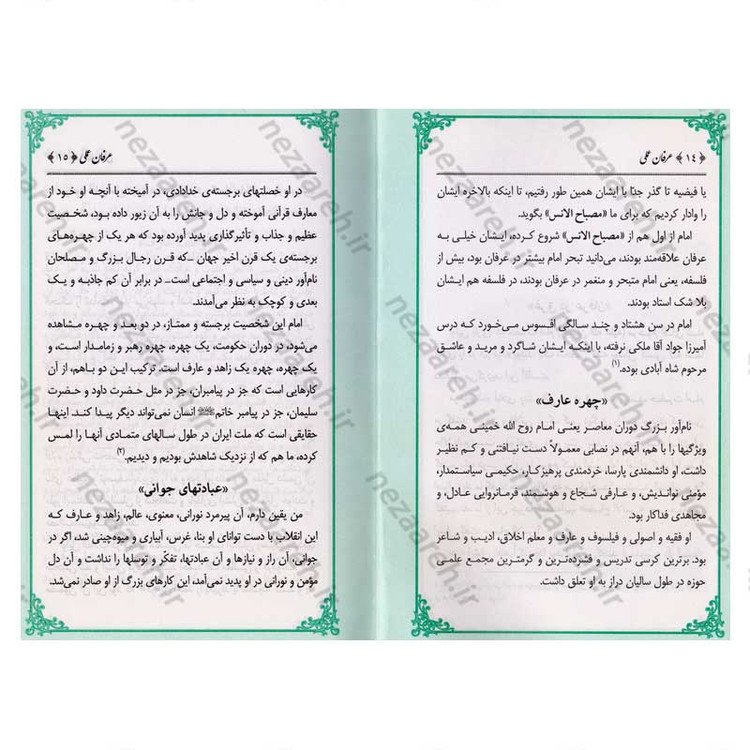 ﴿ ۱۴ ﴾ عرفان عملی
یا فیضیه تا گذر جدّا با ایشان همین طور رفتیم، تا اینکه بالاخره ایشان
را وادار کردیم که برای ما «مصباح الانس» بگوید.
امام از اول هم از «مصباح الانس» شروع کرده، ایشان خیلی به
عرفان علاقه‌مند بودند، می‌دانید تبحر امام بیشتر در عرفان بود، بیش از
فلسفه، یعنی امام متبحر و منغمر در عرفان بودند، در فلسفه هم ایشان
بلا شک استاد بودند.
امام در سن هشتاد و چند سالگی افسوس می‌خورد که درس
آمیرزا جواد آقا ملکی نرفته، با اینکه ایشان شاگرد و مرید و عاشق
مرحوم شاه آبادی بوده.(۱)
«چهره عارف»
نام‌آور بزرگ دوران معاصر یعنی امام روح الله خمینی همه‌ی
ویژگیها را با هم، آنهم در نصابی معمولاً دست نیافتنی و کم نظیر
داشت، او دانشمندی پارسا، خردمندی پرهیزکار، حکیمی سیاستمدار،
مؤمنی نواندیش، و عارفی شجاع و هوشمند، فرمانروایی عادل، و
مجاهدی فداکار بود.
او فقیه و اصولی و فیلسوف و عارف و معلم اخلاق، ادیب و شاعر
بود. برترین کرسی تدریس و فشرده‌ترین و گرمترین مجمع علمی
حوزه در طول سالیان دراز به او تعلق داشت.
عرفان عملی ﴿ ۱۵ ﴾
در او خصلتهای برجسته‌ی خدادادی، در آمیخته با آنچه او خود از
معارف قرآنی آموخته و دل و جانش را به آن زیور داده بود، شخصیت
عظیم و جذاب و تأثیرگذاری پدید آورده بود که هر یک از چهره‌های
برجسته‌ی یک قرن اخیر جهان ــ که قرن رجال بزرگ و مصلحان
نام‌آور دینی و سیاسی و اجتماعی است ــ در برابر آن کم جاذبه و یک
بعدی و کوچک به نظر می‌آمدند.
امام این شخصیت برجسته و ممتاز، در دو بعد و چهره مشاهده
می‌شود، در دوران حکومت، یک چهره، چهره رهبر و زمامدار است، و
یک چهره، چهره یک زاهد و عارف است. ترکیب این دو باهم، از آن
کارهایی است که جز در پیامبران، جز در مثل حضرت داود و حضرت
سلیمان، جز در پیامبر خاتم ﷺ انسان نمی‌تواند دیگر پیدا کند. اینها
حقایقی است که ملت ایران در طول سالهای متمادی آنها را لمس
کرده، ما هم که از نزدیک شاهدش بودیم و دیدیم.(۲)
«عبادتهای جوانی»
من یقین دارم، آن پیرمرد نورانی، معنوی، عالم، زاهد و عارف که
این انقلاب با دست توانای او بنا، غرس، آبیاری و میوه‌چینی شد، اگر در
جوانی، آن راز و نیازها و آن عبادتها، تفکّر و توسلها را نداشت و آن دل
مؤمن و نورانی در او پدید نمی‌آمد، این کارهای بزرگ از او صادر نمی‌شد.
nezaareh.ir
nezaareh.ir
nezaareh.ir
nezaareh.ir
nezaareh.ir
nezaareh.ir
nezaareh.ir
nezaareh.ir
nezaareh.ir